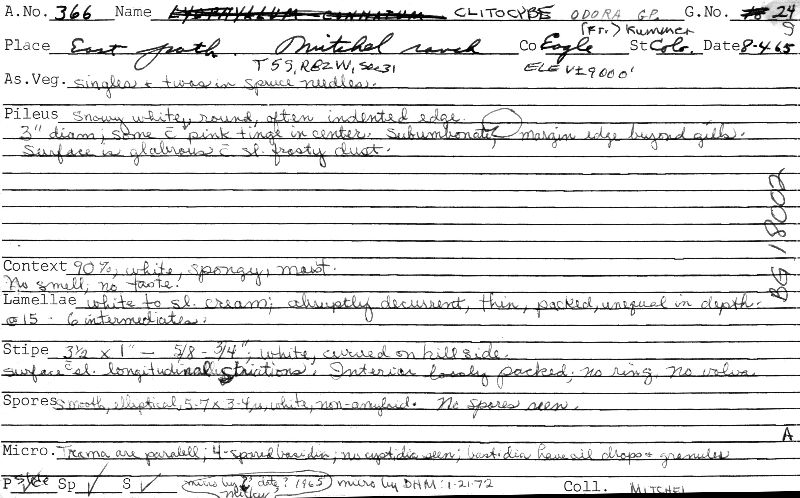 A.No. 366 Name LYOPHYLLUM CONNATUM CLITOCYBE ODORA GP. G.No. 24
(Fr.) Kummer S
Place East path Mitchel ranch Co Eagle St Colo. Date 8-4-65
T5S, R82W, Sec 31 ELEV ± 9000'
As.Veg. Singles + twos in spruce needles.
Pileus Snowy white, round, often indented edge.
3" diam; some c̄ pink tinge in center. Subumbonate, margin edge beyond gills.
Surface is glabrous c̄ sl. frosty dust.
BG 18002
Context 90%, white, spongy, moist.
No smell; no taste.
Lamellae white to sl. cream; abruptly decurrent, thin, packed, unequal in depth.
@15 - 6 intermediates.
Stipe 3½ x 1" - 5/8 - 3/4"; white, curved on hillside.
surface c̄ sl. longitudinal striations. Interior loosely packed; no ring, no volva
Spores smooth, elliptical, 5-7 x 3-4µ, white, non-amyloid. No spores seen.
A
Micro. Trama are parallell; 4-spored basidia; no cystidia seen; basidia have oil drops + granules
P Sp S micro by ? date? 1965 micro by DHM: 1-21-72 Coll. MITCHEL